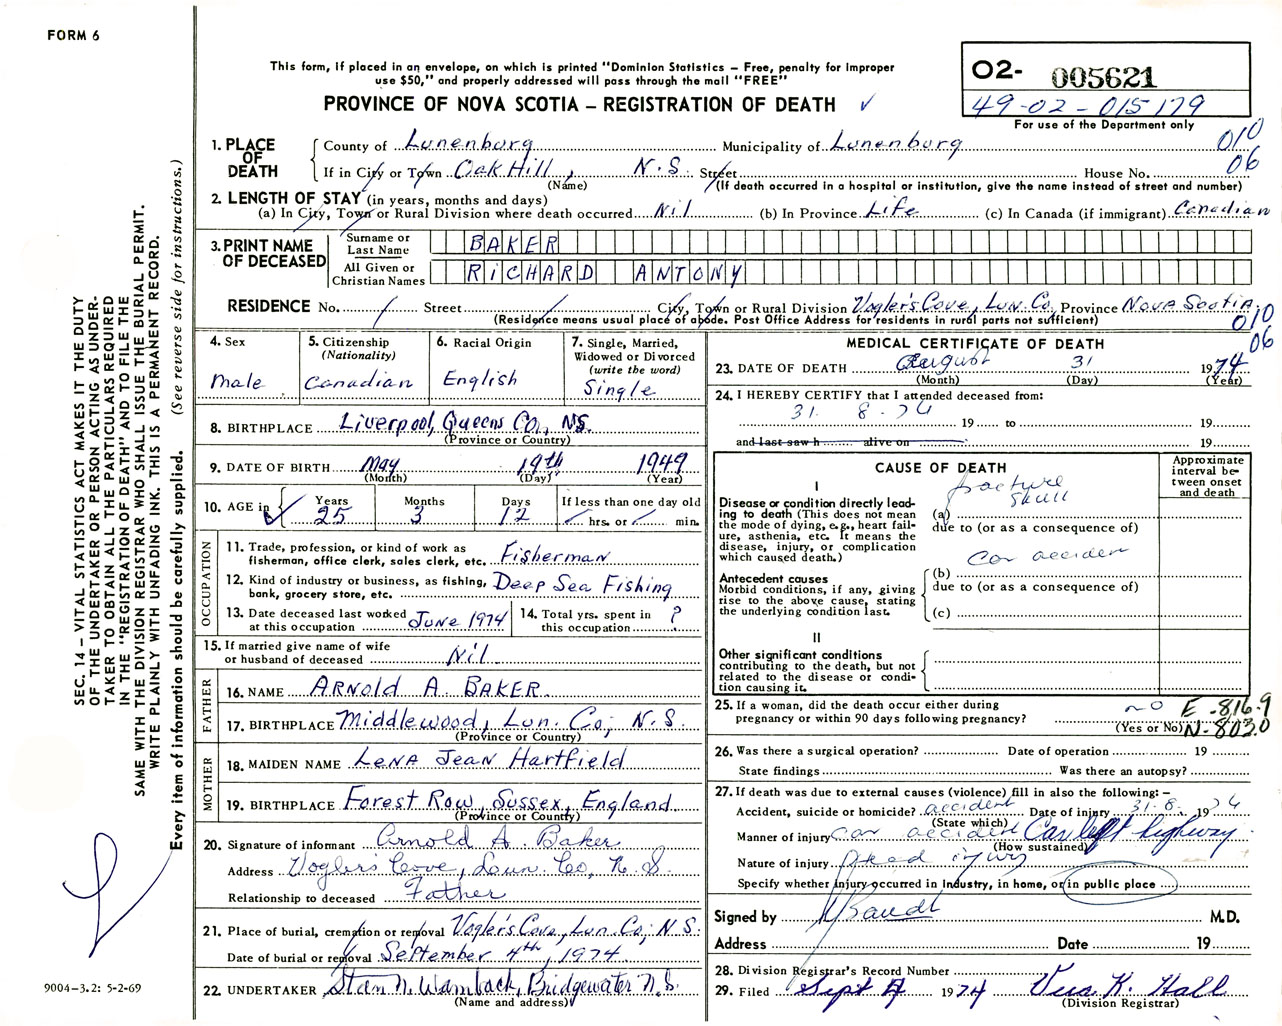 FORM 6
This form, if placed in an envelope, on which is printed "Dominion Statistics – Free, penalty for improper
use $50," and properly addressed will pass through the mail "FREE"
PROVINCE OF NOVA SCOTIA – REGISTRATION OF DEATH ✓
O2- 005621
49-02-015179
For use of the Department only
010
06
1. PLACE OF DEATH
County of Lunenburg Municipality of Lunenburg
If in City or Town Oak Hill, N.S. Street House No.
(Name) (If death occurred in a hospital or institution, give the name instead of street and number)
2. LENGTH OF STAY (in years, months and days)
(a) In City, Town or Rural Division where death occurred Nil (b) In Province Life (c) In Canada (if immigrant) Canadian
3. PRINT NAME OF DECEASED
Surname or Last Name BAKER
All Given or Christian Names RICHARD ANTONY
RESIDENCE No. / Street / City, Town or Rural Division Vogler's Cove, Lun. Co. Province Nova Scotia
(Residence means usual place of abode. Post Office Address for residents in rural parts not sufficient)
010
06
4. Sex Male
5. Citizenship (Nationality) Canadian
6. Racial Origin English
7. Single, Married, Widowed or Divorced (write the word) Single
8. BIRTHPLACE Liverpool, Queens Co., NS.
(Province or Country)
9. DATE OF BIRTH May 19th 1949
(Month) (Day) (Year)
10. AGE in Years 25 Months 3 Days 12 If less than one day old hrs. or min.
OCCUPATION
11. Trade, profession, or kind of work as
fisherman, office clerk, sales clerk, etc. Fisherman
12. Kind of industry or business, as fishing,
bank, grocery store, etc. Deep Sea Fishing
13. Date deceased last worked
at this occupation June 1974
14. Total yrs. spent in
this occupation ?
15. If married give name of wife
or husband of deceased Nil
FATHER
16. NAME Arnold A. Baker
17. BIRTHPLACE Middlewood, Lun. Co; N.S.
(Province or Country)
MOTHER
18. MAIDEN NAME Lena Jean Hartfield
19. BIRTHPLACE Forest Row, Sussex, England
(Province or Country)
20. Signature of informant Arnold A. Baker
Address Vogler's Cove, Lun. Co, N.S.
Relationship to deceased Father
21. Place of burial, cremation or removal Vogler's Cove, Lun. Co; N.S.
Date of burial or removal September 4th, 1974
22. UNDERTAKER Stan N. Wamback, Bridgewater N.S.
(Name and address)
MEDICAL CERTIFICATE OF DEATH
23. DATE OF DEATH August 31 1974
(Month) (Day) (Year)
24. I HEREBY CERTIFY that I attended deceased from:
31. 8. 74
19 to 19
and last saw h alive on 19
CAUSE OF DEATH
Approximate interval between onset and death
I
Disease or condition directly lead-
ing to death (This does not mean
the mode of dying, e.g., heart fail-
ure, asthenia, etc. It means the
disease, injury, or complication
which caused death.)
fracture
skull
(a)
due to (or as a consequence of)
car accident
Antecedent causes
Morbid conditions, if any, giving
rise to the above cause, stating
the underlying condition last.
(b)
due to (or as a consequence of)
(c)
II
Other significant conditions
contributing to the death, but not
related to the disease or condi-
tion causing it.
25. If a woman, did the death occur either during
pregnancy or within 90 days following pregnancy? no
(Yes or No)
E-816.9
N-803.0
26. Was there a surgical operation? Date of operation 19
State findings Was there an autopsy?
27. If death was due to external causes (violence) fill in also the following: –
Accident, suicide or homicide? accident Date of injury 31.8. 1974
(State which)
Manner of injury car accident Car left highway
(How sustained)
Nature of injury head injury
Specify whether injury occurred in Industry, in home, or in public place
Signed by M.D.
Address Date 19
28. Division Registrar's Record Number
29. Filed Sept 4 1974 Vera K. Hall
(Division Registrar)
SEC. 14 – VITAL STATISTICS ACT MAKES IT THE DUTY
OF THE UNDERTAKER OR PERSON ACTING AS UNDER-
TAKER TO OBTAIN ALL THE PARTICULARS REQUIRED
IN THE "REGISTRATION OF DEATH" AND TO FILE THE
SAME WITH THE DIVISION REGISTRAR WHO SHALL ISSUE THE BURIAL PERMIT.
WRITE PLAINLY WITH UNFADING INK. THIS IS A PERMANENT RECORD.
Every item of information should be carefully supplied. (See reverse side for instructions.)
9004-3.2: 5-2-69